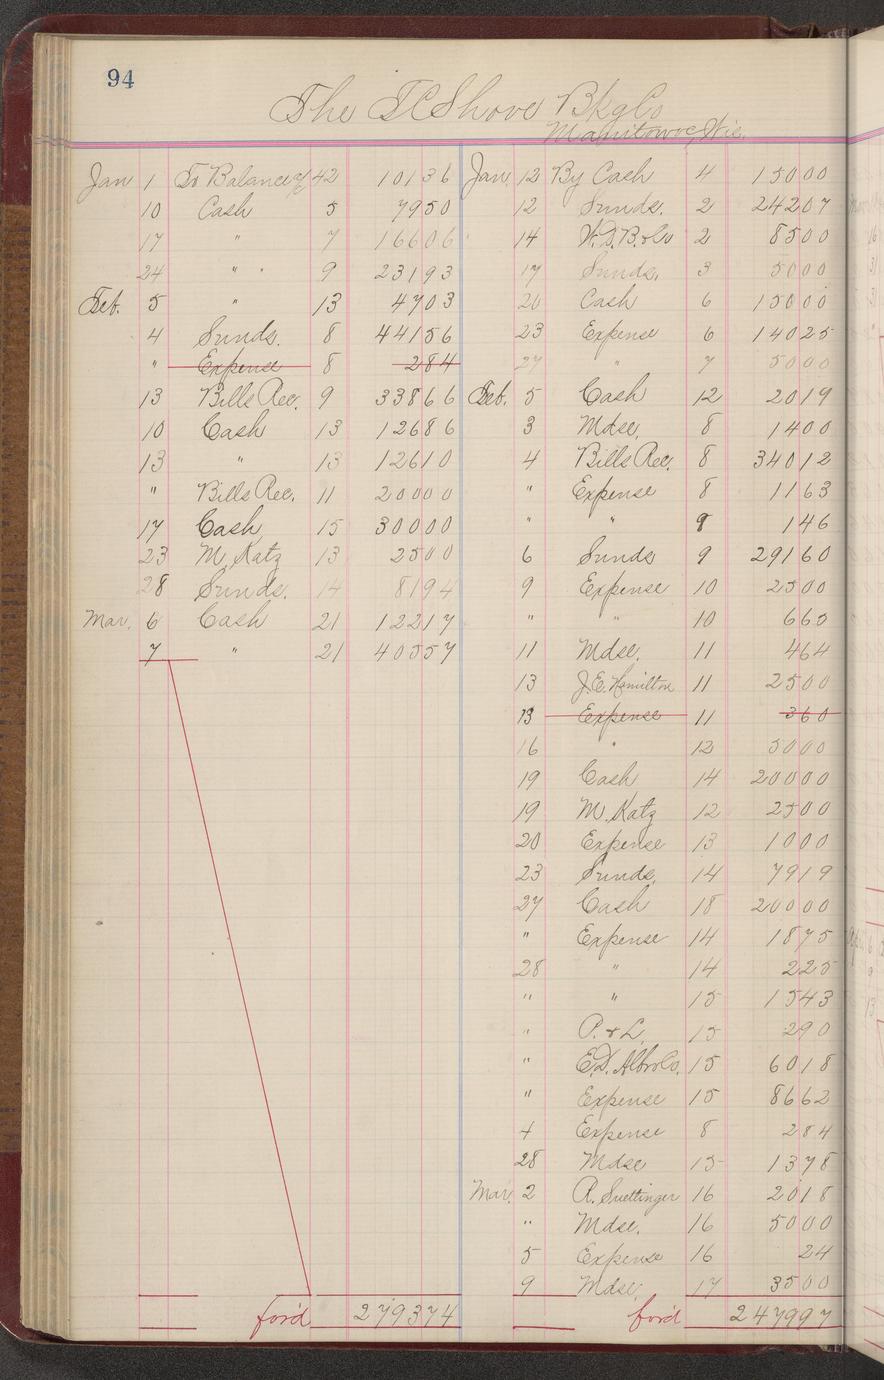 94
The T C Shove Bkg Co
Manitowoc, Wis.
Jan 1 To Balance 42 10136
10 Cash 5 7950
17 " 7 16606
24 " " 9 23193
Feb. 5 " 13 4703
4 Sunds. 8 44156
" Expense 8 284
13 Bills Rec. 9 33866
10 Cash 13 12686
13 " 13 12610
" Bills Rec. 11 20000
17 Cash 15 30000
23 M. Katz 13 2500
28 Sunds. 14 8194
Mar. 6 Cash 21 12217
7 " 21 40557
for'd 279374
Jan 12 By Cash 4 15000
12 Sunds. 2 24207
14 W.D.B. & Co 2 8500
17 Sunds. 3 5000
20 Cash 6 15000
23 Expense 6 14025
27 " 7 5000
Feb. 5 Cash 12 2019
3 Mdse. 8 1400
4 Bills Rec. 8 34012
" Expense 8 1163
" " 9 146
6 Sunds 9 29160
9 Expense 10 2500
" " 10 665
11 Mdse. 11 464
13 J.E. Hamilton 11 2500
13 Expense 11 360
16 " 12 5000
19 Cash 14 20000
19 M. Katz 12 2500
20 Expense 13 1000
23 Sunds. 14 7919
27 Cash 18 20000
" Expense 14 1875
28 " 14 225
" " 15 1543
" P. & L. 15 290
" E.D. Albro Co. 15 6018
" Expense 15 8662
4 Expense 8 284
28 Mdse 15 1378
Mar. 2 A. Suettinger 16 2018
" Mdse. 16 5000
5 Expense 16 24
9 Mdse. 17 3500
for'd 247997